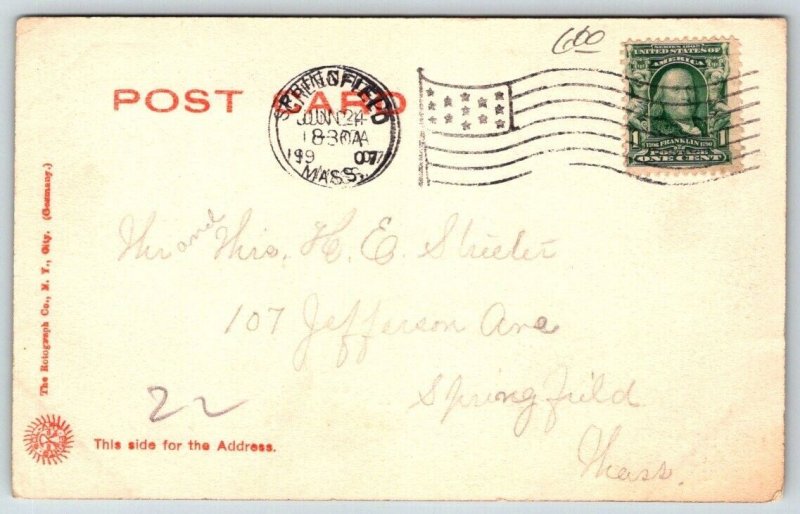 600
POST CARD
SPRINGFIELD
JUN 24
830A
1907
MASS.
SERIES 1902
UNITED STATES OF
AMERICA
1 1706 FRANKLIN 1790 1
POSTAGE
ONE CENT
Mr and Mrs. H. E. Streeter
107 Jefferson Ave
Springfield
Mass.
22
The Rotograph Co., N. Y., City. (Germany.)
This side for the Address.